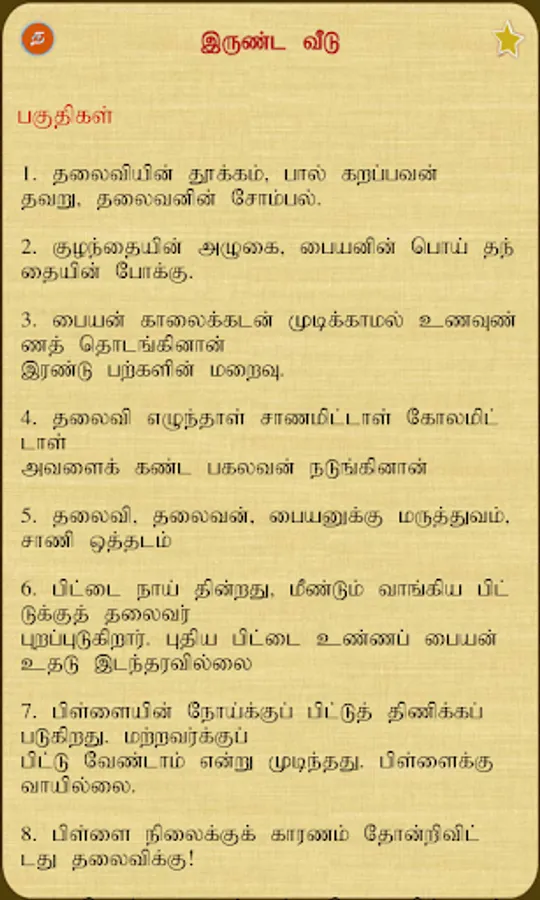 த
இருண்ட வீடு
பகுதிகள்
1. தலைவியின் தூக்கம், பால் கறப்பவன்
தவறு, தலைவனின் சோம்பல்.
2. குழந்தையின் அழுகை, பையனின் பொய் தந்
தையின் போக்கு.
3. பையன் காலைக்கடன் முடிக்காமல் உணவுண்
ணத் தொடங்கினான்
இரண்டு பற்களின் மறைவு.
4. தலைவி எழுந்தாள் சாணமிட்டாள் கோலமிட்
டாள்
அவளைக் கண்ட பகலவன் நடுங்கினான்
5. தலைவி, தலைவன், பையனுக்கு மருத்துவம்,
சாணி ஒத்தடம்
6. பிட்டை நாய் தின்றது, மீண்டும் வாங்கிய பிட்
டுக்குத் தலைவர்
புறப்படுகிறார். புதிய பிட்டை உண்ணப் பையன்
உதடு இடந்தரவில்லை
7. பிள்ளையின் நோய்க்குப் பிட்டுத் திணிக்கப்
படுகிறது. மற்றவர்க்குப்
பிட்டு வேண்டாம் என்று முடிந்தது. பிள்ளைக்கு
வாயில்லை.
8. பிள்ளை நிலைக்குக் காரணம் தோன்றிவிட்
டது தலைவிக்கு!